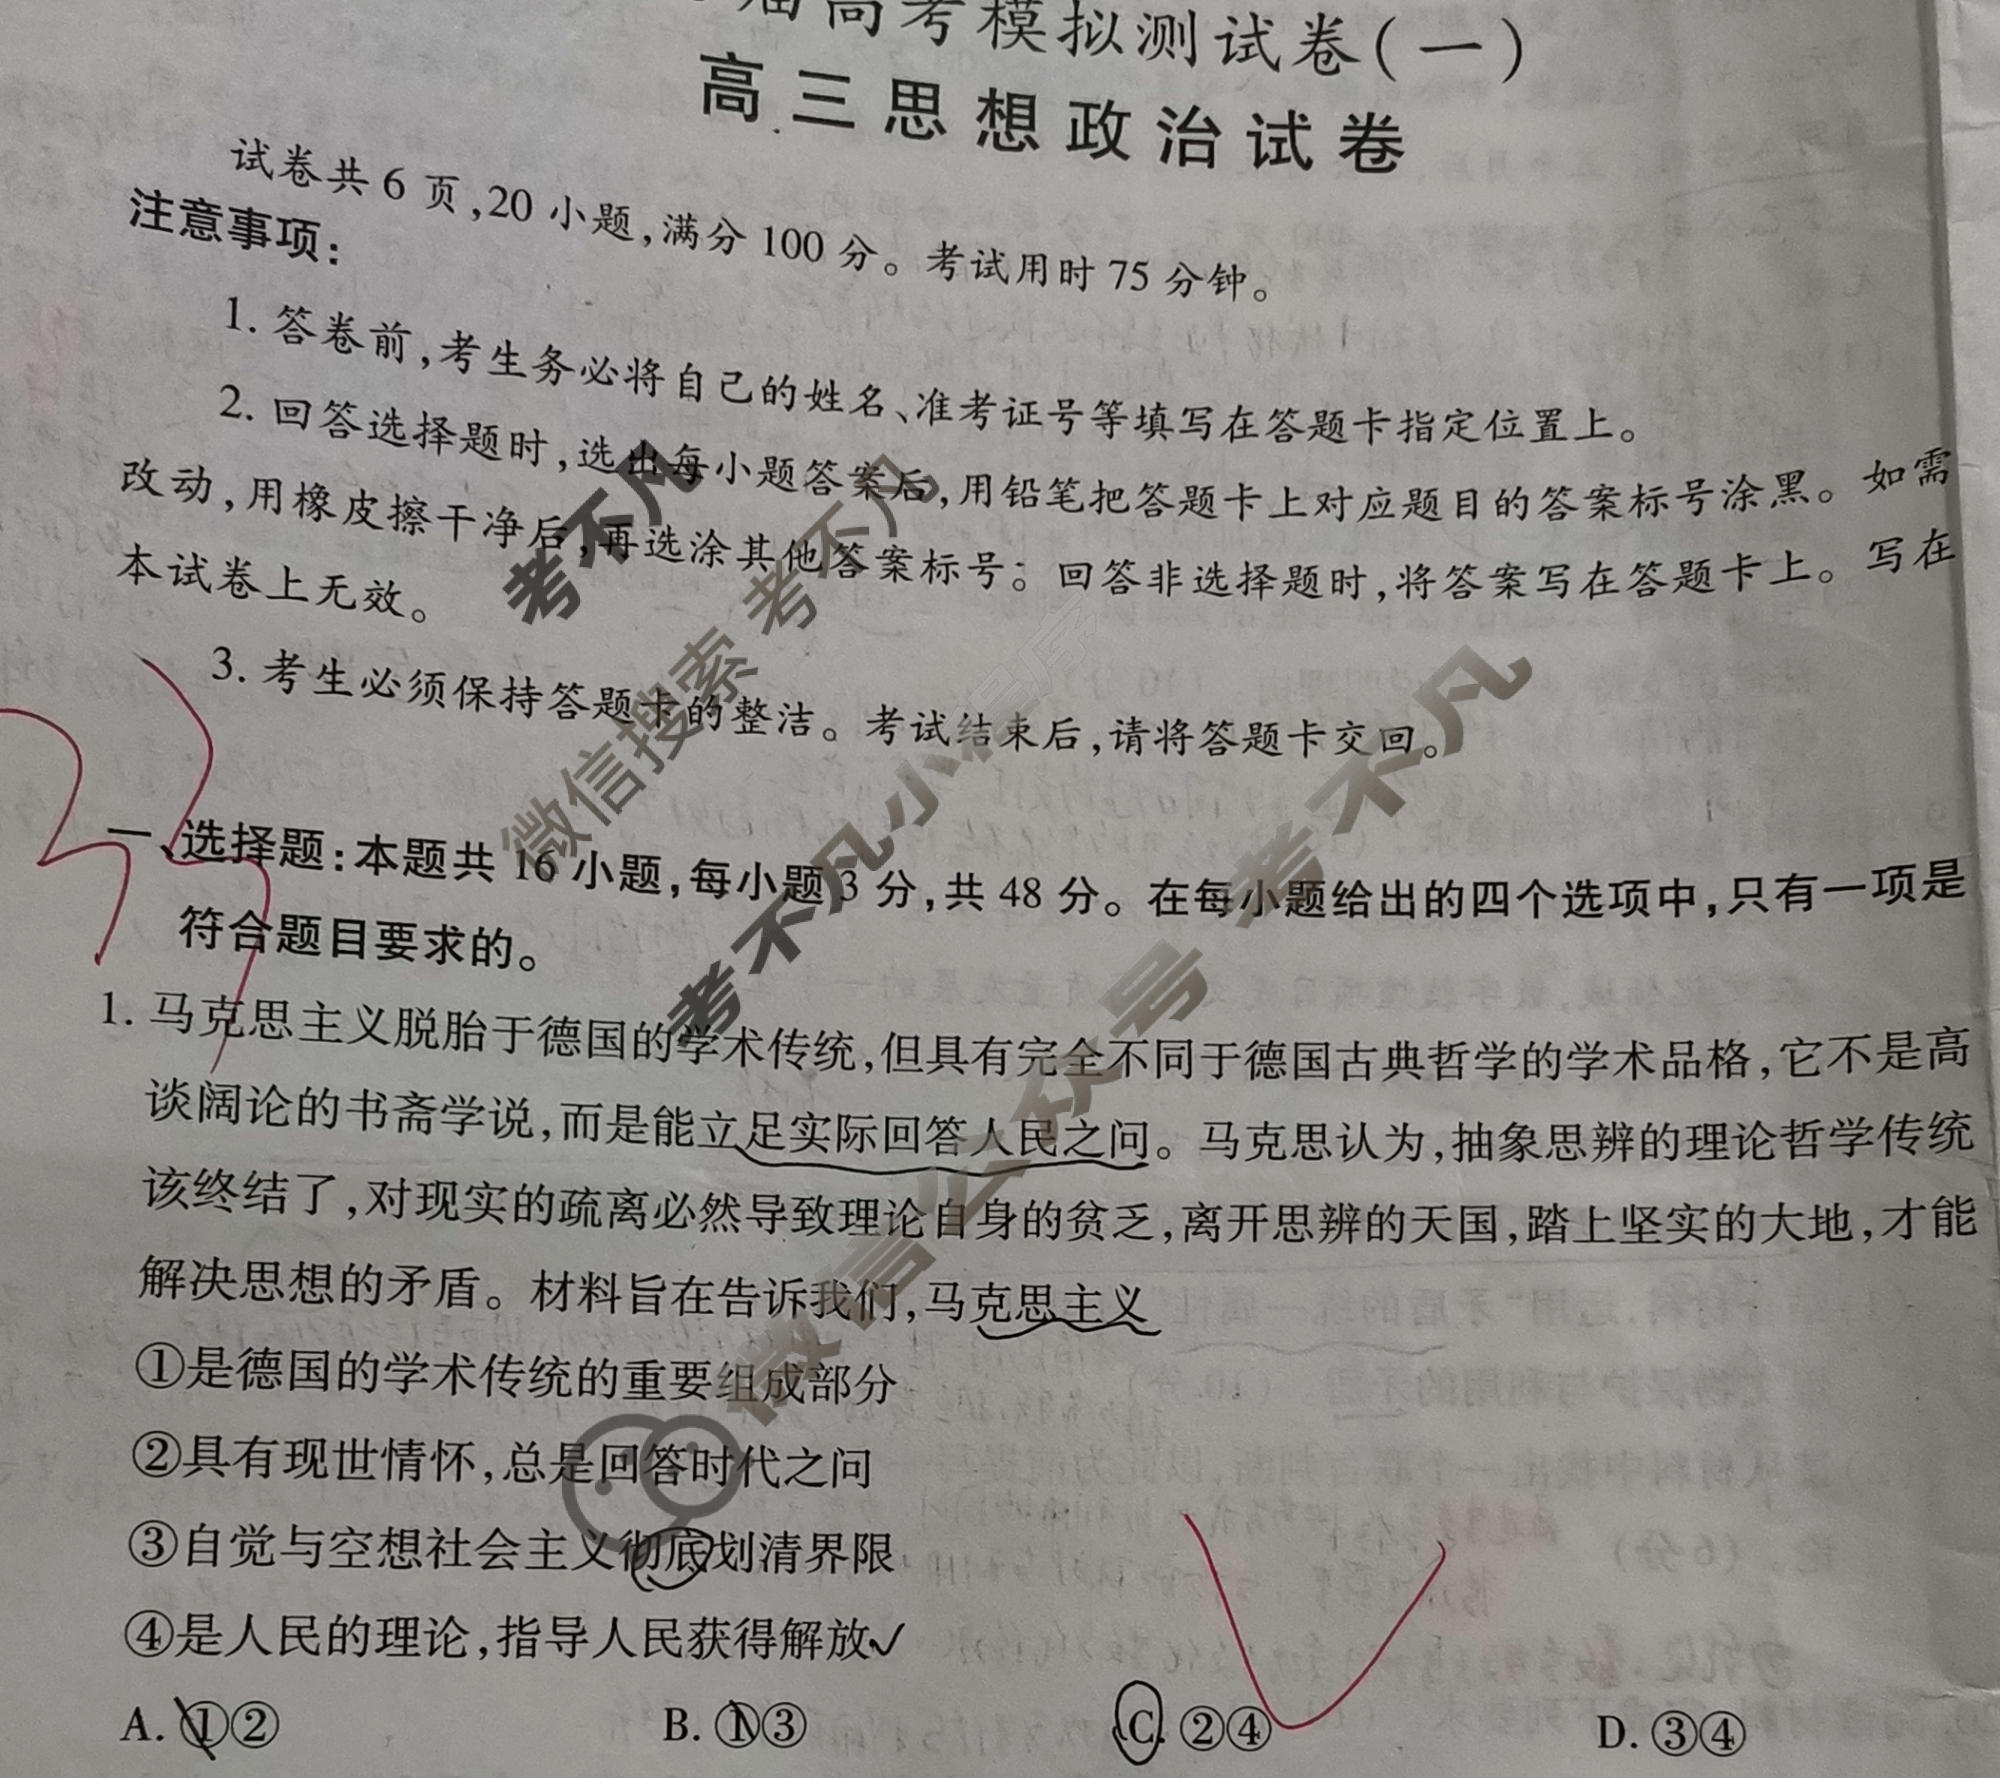 届高考模拟测试卷(一)
高三思想政治试卷
试卷共6页,20小题,满分100分。考试用时75分钟。
注意事项:
1. 答卷前,考生务必将自己的姓名、准考证号等填写在答题卡指定位置上。
2. 回答选择题时,选出每小题答案后,用铅笔把答题卡上对应题目的答案标号涂黑。如需
改动,用橡皮擦干净后,再选涂其他答案标号。回答非选择题时,将答案写在答题卡上。写在
本试卷上无效。
3. 考生必须保持答题卡的整洁。考试结束后,请将答题卡交回。
一、选择题:本题共16小题,每小题3分,共48分。在每小题给出的四个选项中,只有一项是
符合题目要求的。
1. 马克思主义脱胎于德国的学术传统,但具有完全不同于德国古典哲学的学术品格,它不是高
谈阔论的书斋学说,而是能立足实际回答人民之问。马克思认为,抽象思辨的理论哲学传统
该终结了,对现实的疏离必然导致理论自身的贫乏,离开思辨的天国,踏上坚实的大地,才能
解决思想的矛盾。材料旨在告诉我们,马克思主义
①是德国的学术传统的重要组成部分
②具有现世情怀,总是回答时代之问
③自觉与空想社会主义彻底划清界限
④是人民的理论,指导人民获得解放✓
A. ①② B. ①③ C. ②④ D. ③④
考不凡
微信搜索 考不凡
考不凡小程序
微信公众号 考不凡
33